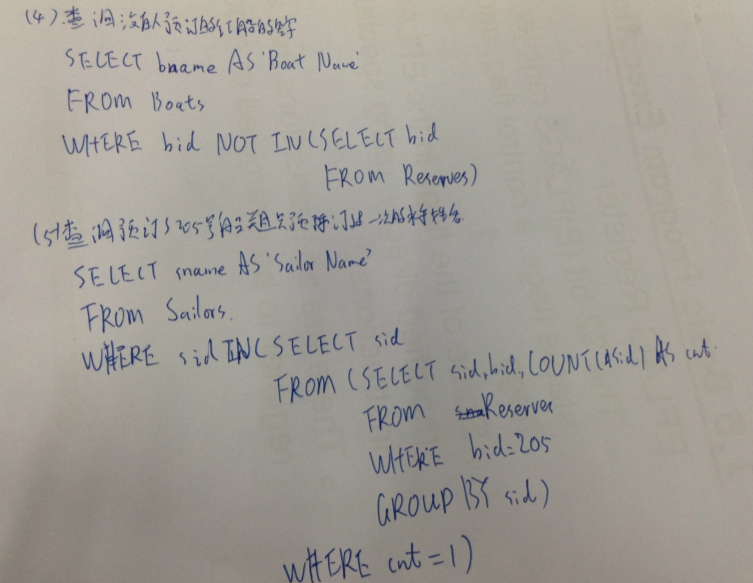 (4).查询没有人预订的红船的名字
SELECT bname AS 'Boat Name'
FROM Boats
WHERE bid NOT IN(SELECT bid
FROM Reserves)
(5)查询预订了205号船且只预订过一次的水手姓名.
SELECT sname AS 'Sailor Name'
FROM Sailors.
WHERE sid IN(SELECT sid
FROM (SELECT sid,bid,COUNT(sid) AS cnt.
FROM Reserves
WHERE bid=205
GROUP BY sid)
WHERE cnt=1)